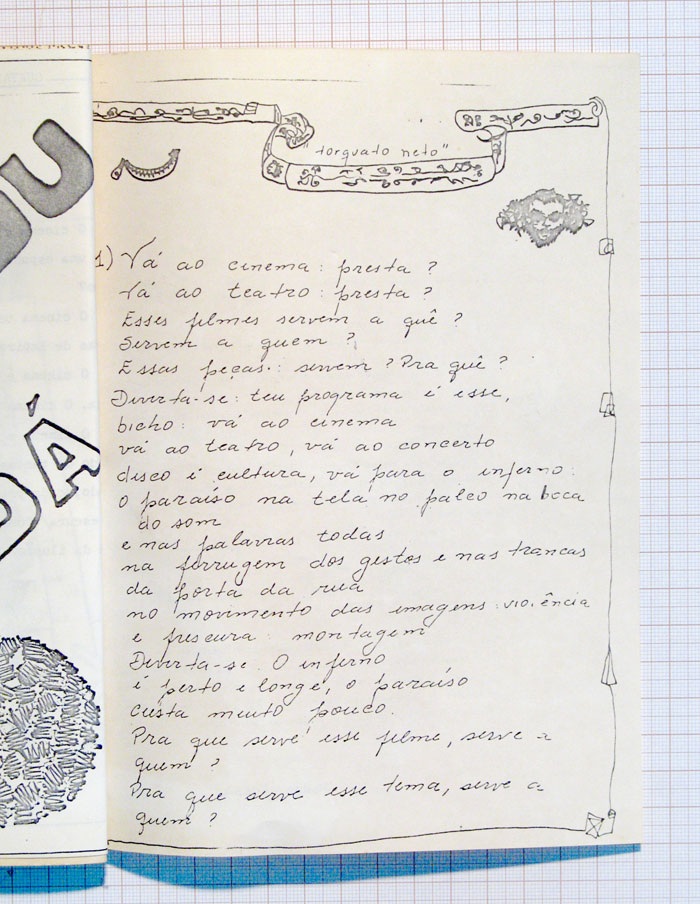 torquato neto"
1) Vá ao cinema: presta?
Vá ao teatro: presta?
Esses filmes servem a quê?
Servem a quem?
Essas peças: servem? Pra quê?
Divirta-se: teu programa é esse,
bicho: vá ao cinema
vá ao teatro, vá ao concerto
disco é cultura, vá para o inferno:
o paraíso na tela no palco na boca
do som
e nas palavras todas
na ferrugem dos gestos e nas trancas
da porta da rua
no movimento das imagens: violência
e frescura: montagem
Divirta-se. O inferno
é perto e longe, o paraíso
custa muito pouco.
Pra que serve esse filme, serve a
quem?
Pra que serve esse tema, serve a
quem?
DÁ